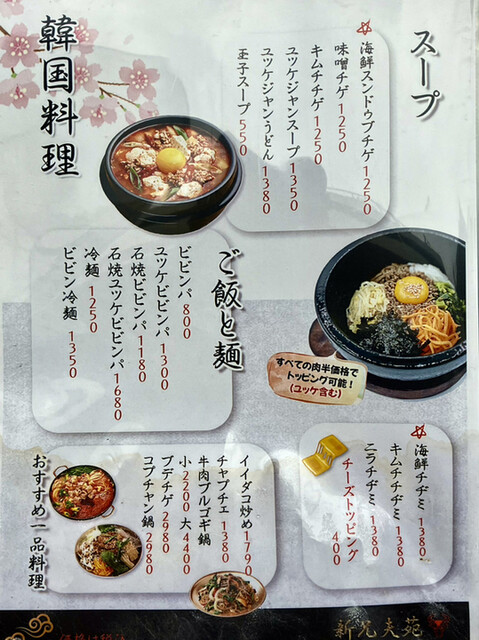 韓国料理
スープ
海鮮スンドゥブチゲ 1250
味噌チゲ 1250
キムチチゲ 1250
ユッケジャンスープ 1350
ユッケジャンうどん 1380
玉子スープ 550
ご飯と麺
ビビンバ 800
ユッケビビンバ 1300
石焼ビビンバ 1180
石焼ユッケビビンバ 1680
冷麺 1250
ビビン冷麺 1350
すべての肉半価格で
トッピング可能！
(ユッケ含む)
海鮮チヂミ 1380
キムチチヂミ 1380
ニラチヂミ 1380
チーズトッピング 400
おすすめ一品料理
イイダコ炒め 1790
チャプチェ 1380
牛肉プルゴギ鍋
小 2200 大 4400
ブデチゲ 2980
コプチャン鍋 2980